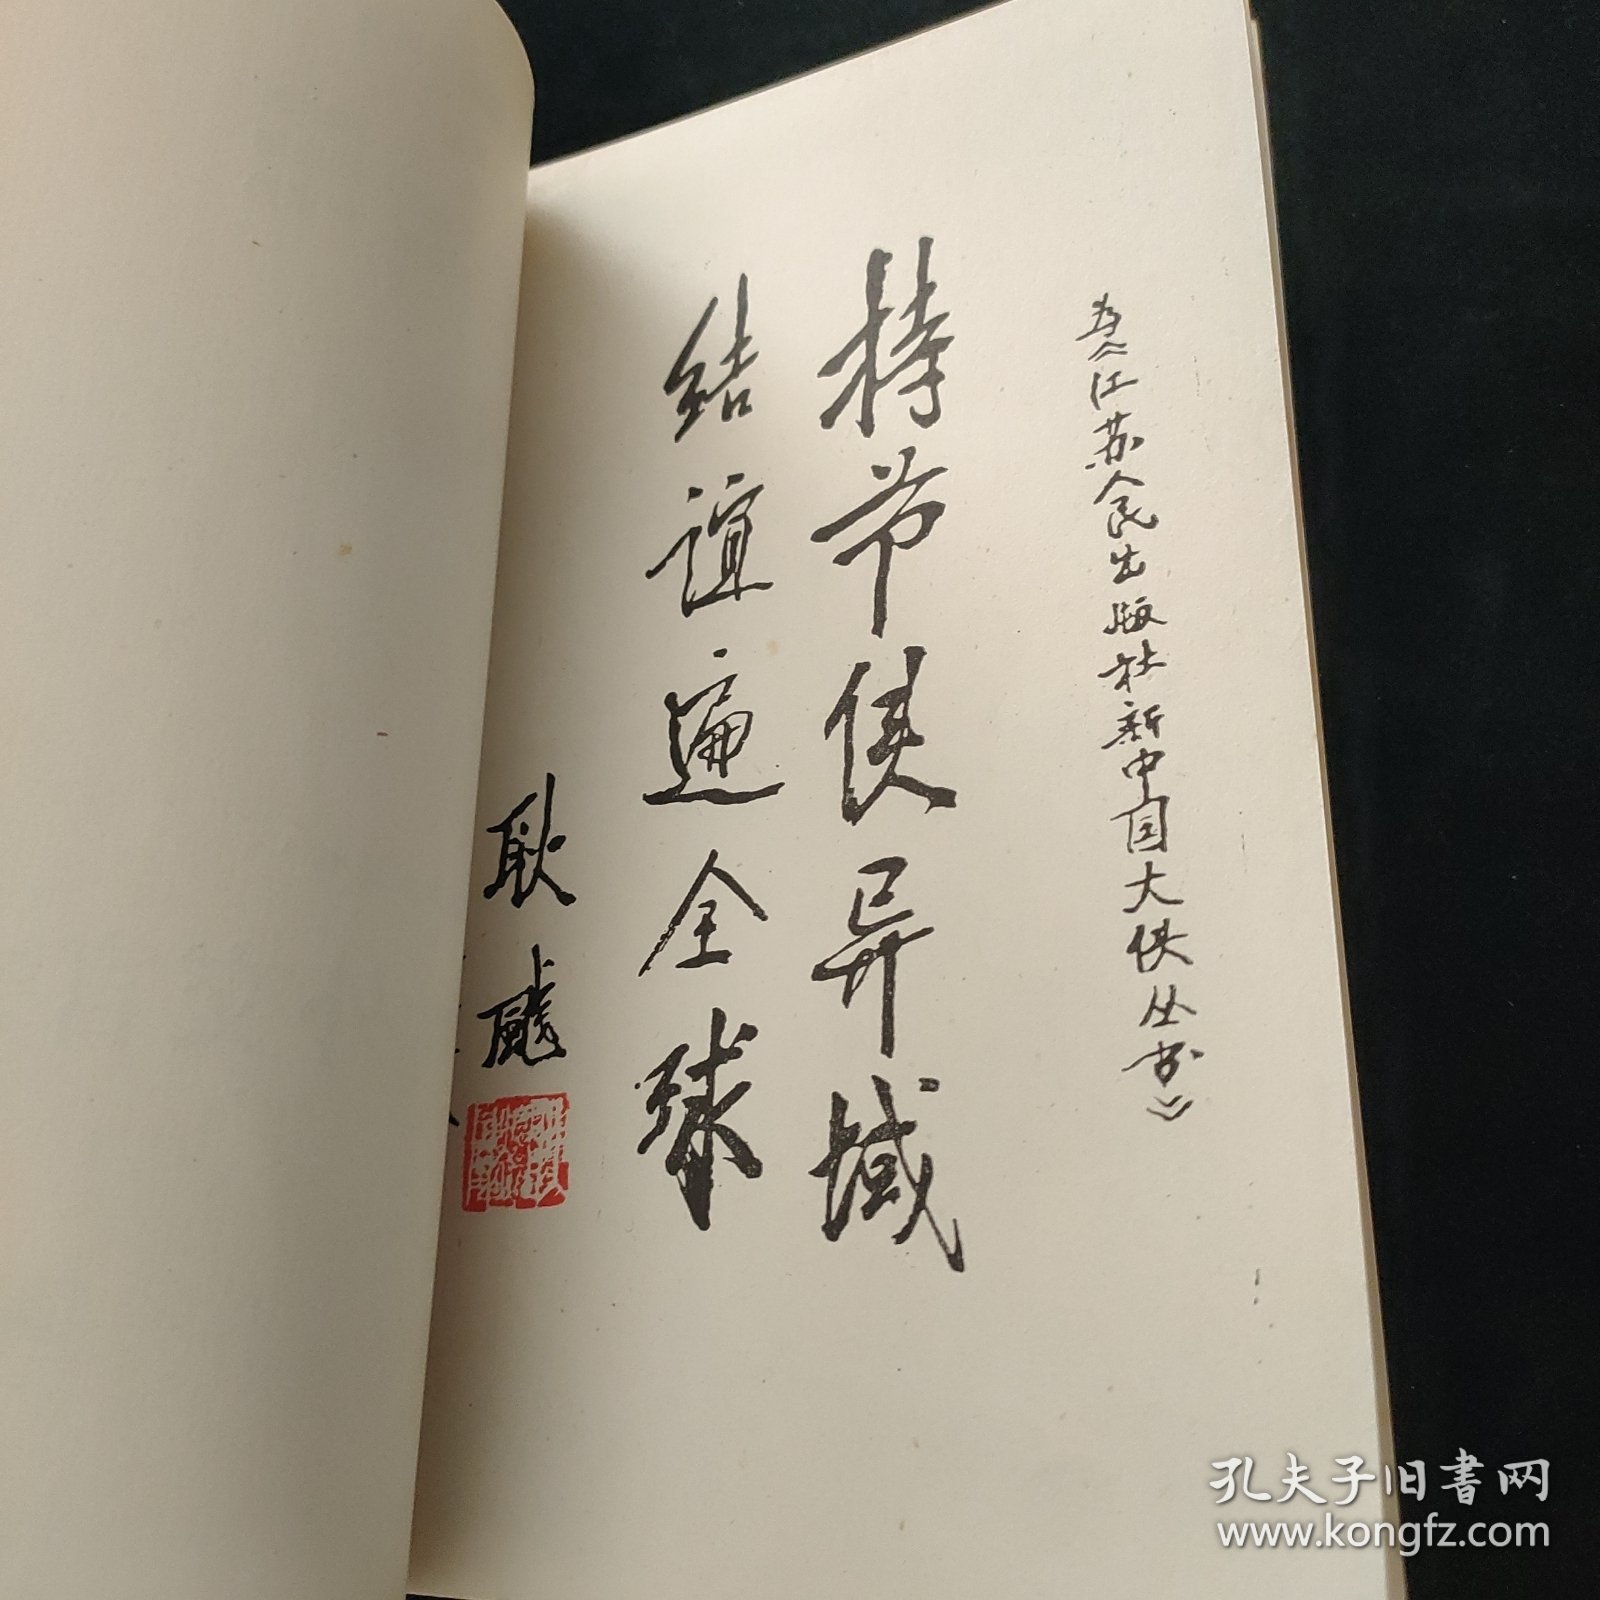 为《江苏人民出版社新中国大使丛书》
持节使异域
结谊遍全球
耿飚
孔夫子旧书网
www.kongfz.com